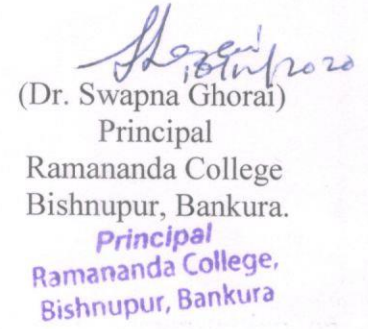 (Dr. Swapna Ghorai)
Principal
Ramananda College
Bishnupur, Bankura.
Principal
Ramananda College,
Bishnupur, Bankura